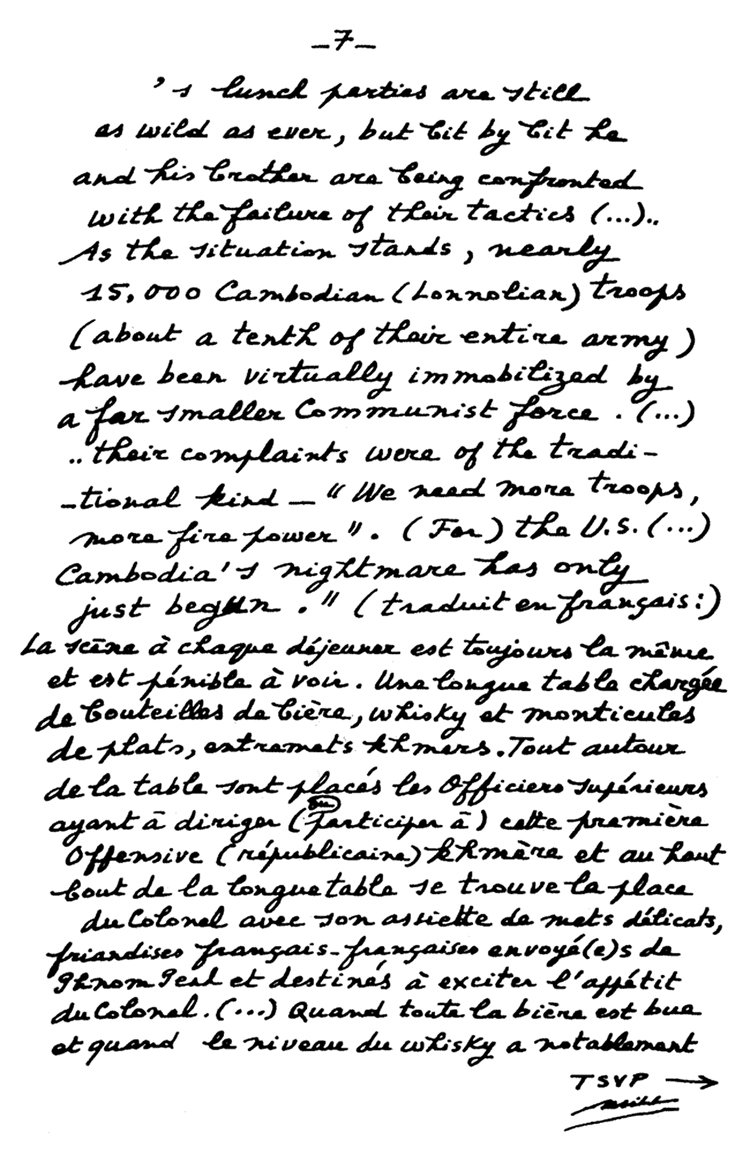 _7_
's lunch parties are still
as wild as ever, but bit by bit he
and his brother are being confronted
with the failure of their tactics (...)..
As the situation stands, nearly
15,000 Cambodian (Lonnolian) troops
(about a tenth of their entire army)
have been virtually immobilized by
a far smaller Communist force. (...)
.. their complaints were of the tradi-
-tional kind _ "We need more troops,
more fire power". (For) the U.S. (...)
Cambodia's nightmare has only
just begun." (traduit en français:)
La scène à chaque déjeuner est toujours la même
et est pénible à voir. Une longue table chargée
de bouteilles de bière, whisky et monticules
de plats, entremets khmers. Tout autour
de la table sont placés les Officiers supérieurs
ayant à diriger (ou participer à) cette première
Offensive (républicaine) khmère et au haut
bout de la longue table se trouve la place
du Colonel avec son assiette de mets délicats,
friandises français-françaises envoyé(e)s de
Phnom Penh et destinés à exciter l'appétit
du Colonel. (...) Quand toute la bière est bue
et quand le niveau du whisky a notablement
TSVP →